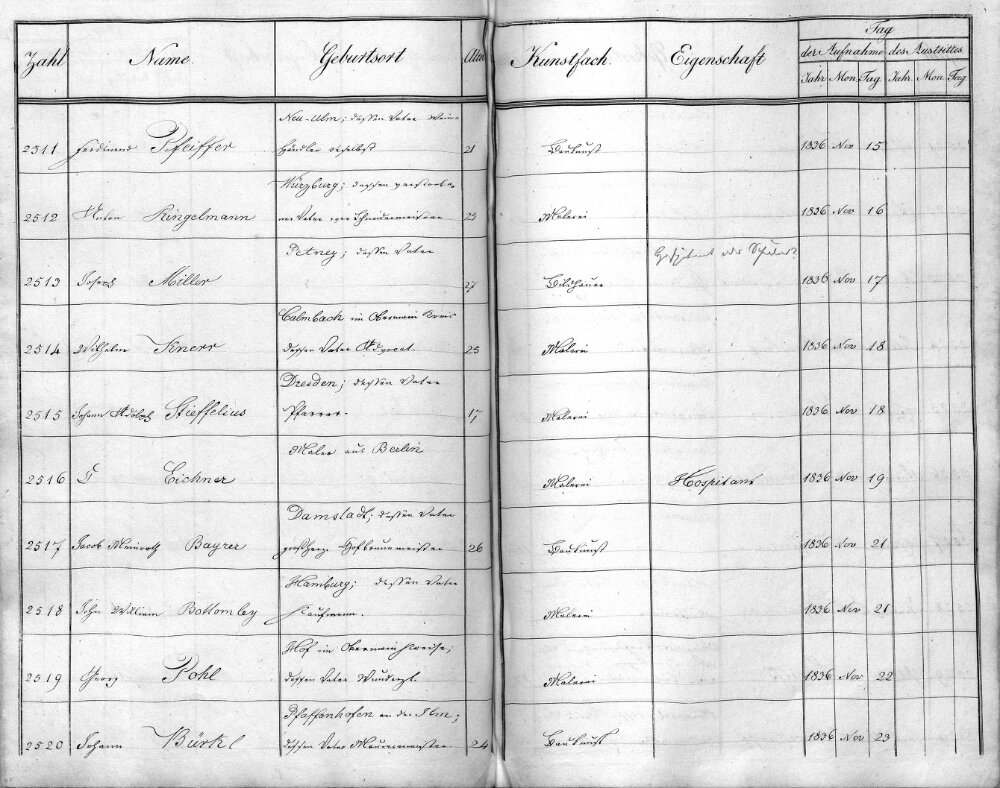 Zahl Name Geburtsort Alter Kunstfach. Eigenschaft Tag
der Aufnahme des Austrittes
Jahr. Mon. Tag Jahr. Mon. Tag
Neu-Ulm; dessen Vater Wein
2311 Ferdinand Pfeiffer händler daselbst 21 Baukunst 1836 Nov 15
Würzburg; dessen verstorbe
2512 Ringelmann ner Vater 23 Malerei 1836 Nov 16
Petney; dessen Vater Hospitant oder Schüler?
2513 Joseph Miller 27 Bildhauer 1836 Nov 17
Culmbach im Obermain Kreis
2514 Wilhelm Knerr dessen Vater Advocat. 25 Malerei 1836 Nov 18
Dresden; dessen Vater
2515 Johann Adolph Stieffelius Pfarrer. 17 Malerei 1836 Nov 18
Maler aus Berlin
2516 Eichner Malerei Hospitant 1836 Nov 19
Damstadt; dessen Vater
2517 Jacob Bayrer Hofbrunnmeister 26 Baukunst 1836 Nov 21
Hamburg; dessen Vater
2518 John William Bottomley Kaufmann. Malerei 1836 Nov 21
Hof im Obermain Kreise;
2519 Georg Pohl dessen Vater Wundarzt. Malerei 1836 Nov 22
Pfaffenhofen an der Ilm;
2520 Johann Bürkl dessen Vater Maurermeister 24 Baukunst 1836 Nov 23